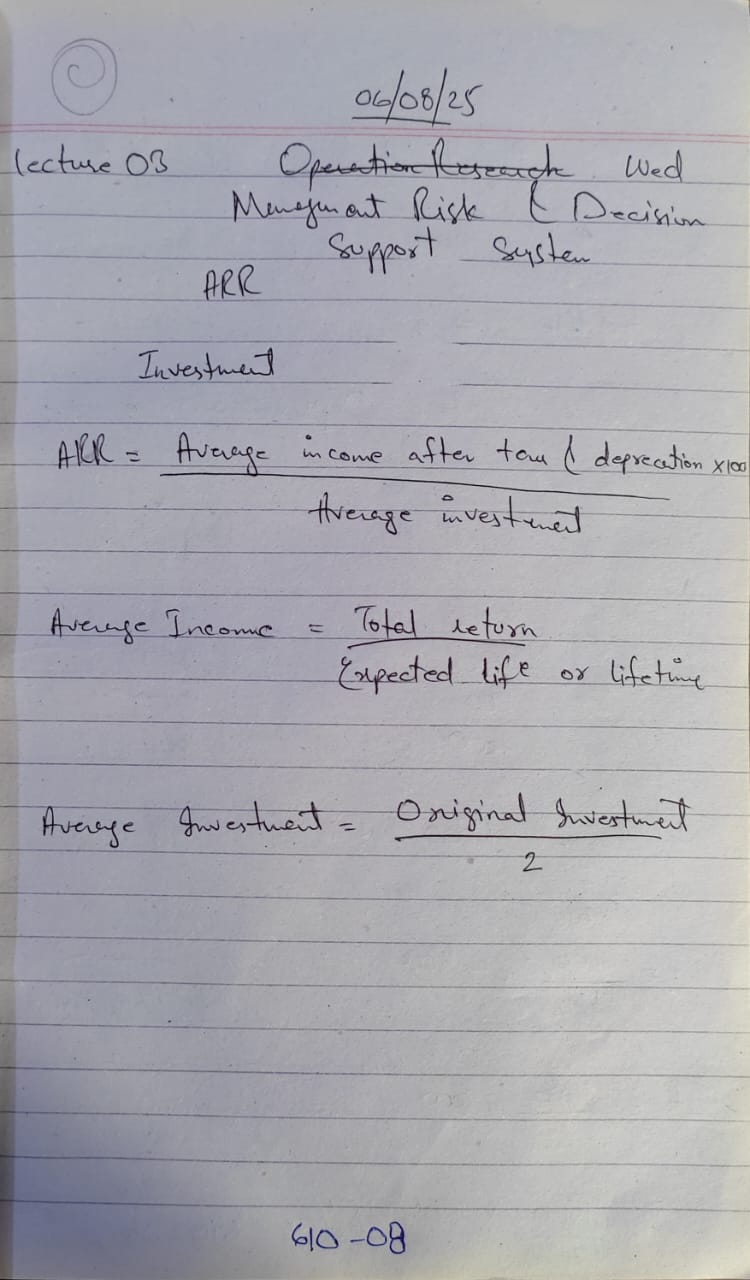 06/08/25
Lecture 03 Operation Research Wed
Menegment Risk & Decision
Support System
ARR
Investment
ARR = Average income after tax & deprecation x100
Average investment
Average Income = Total return
Expected life or lifetime
Average Investment = Original Investment
2
610-08